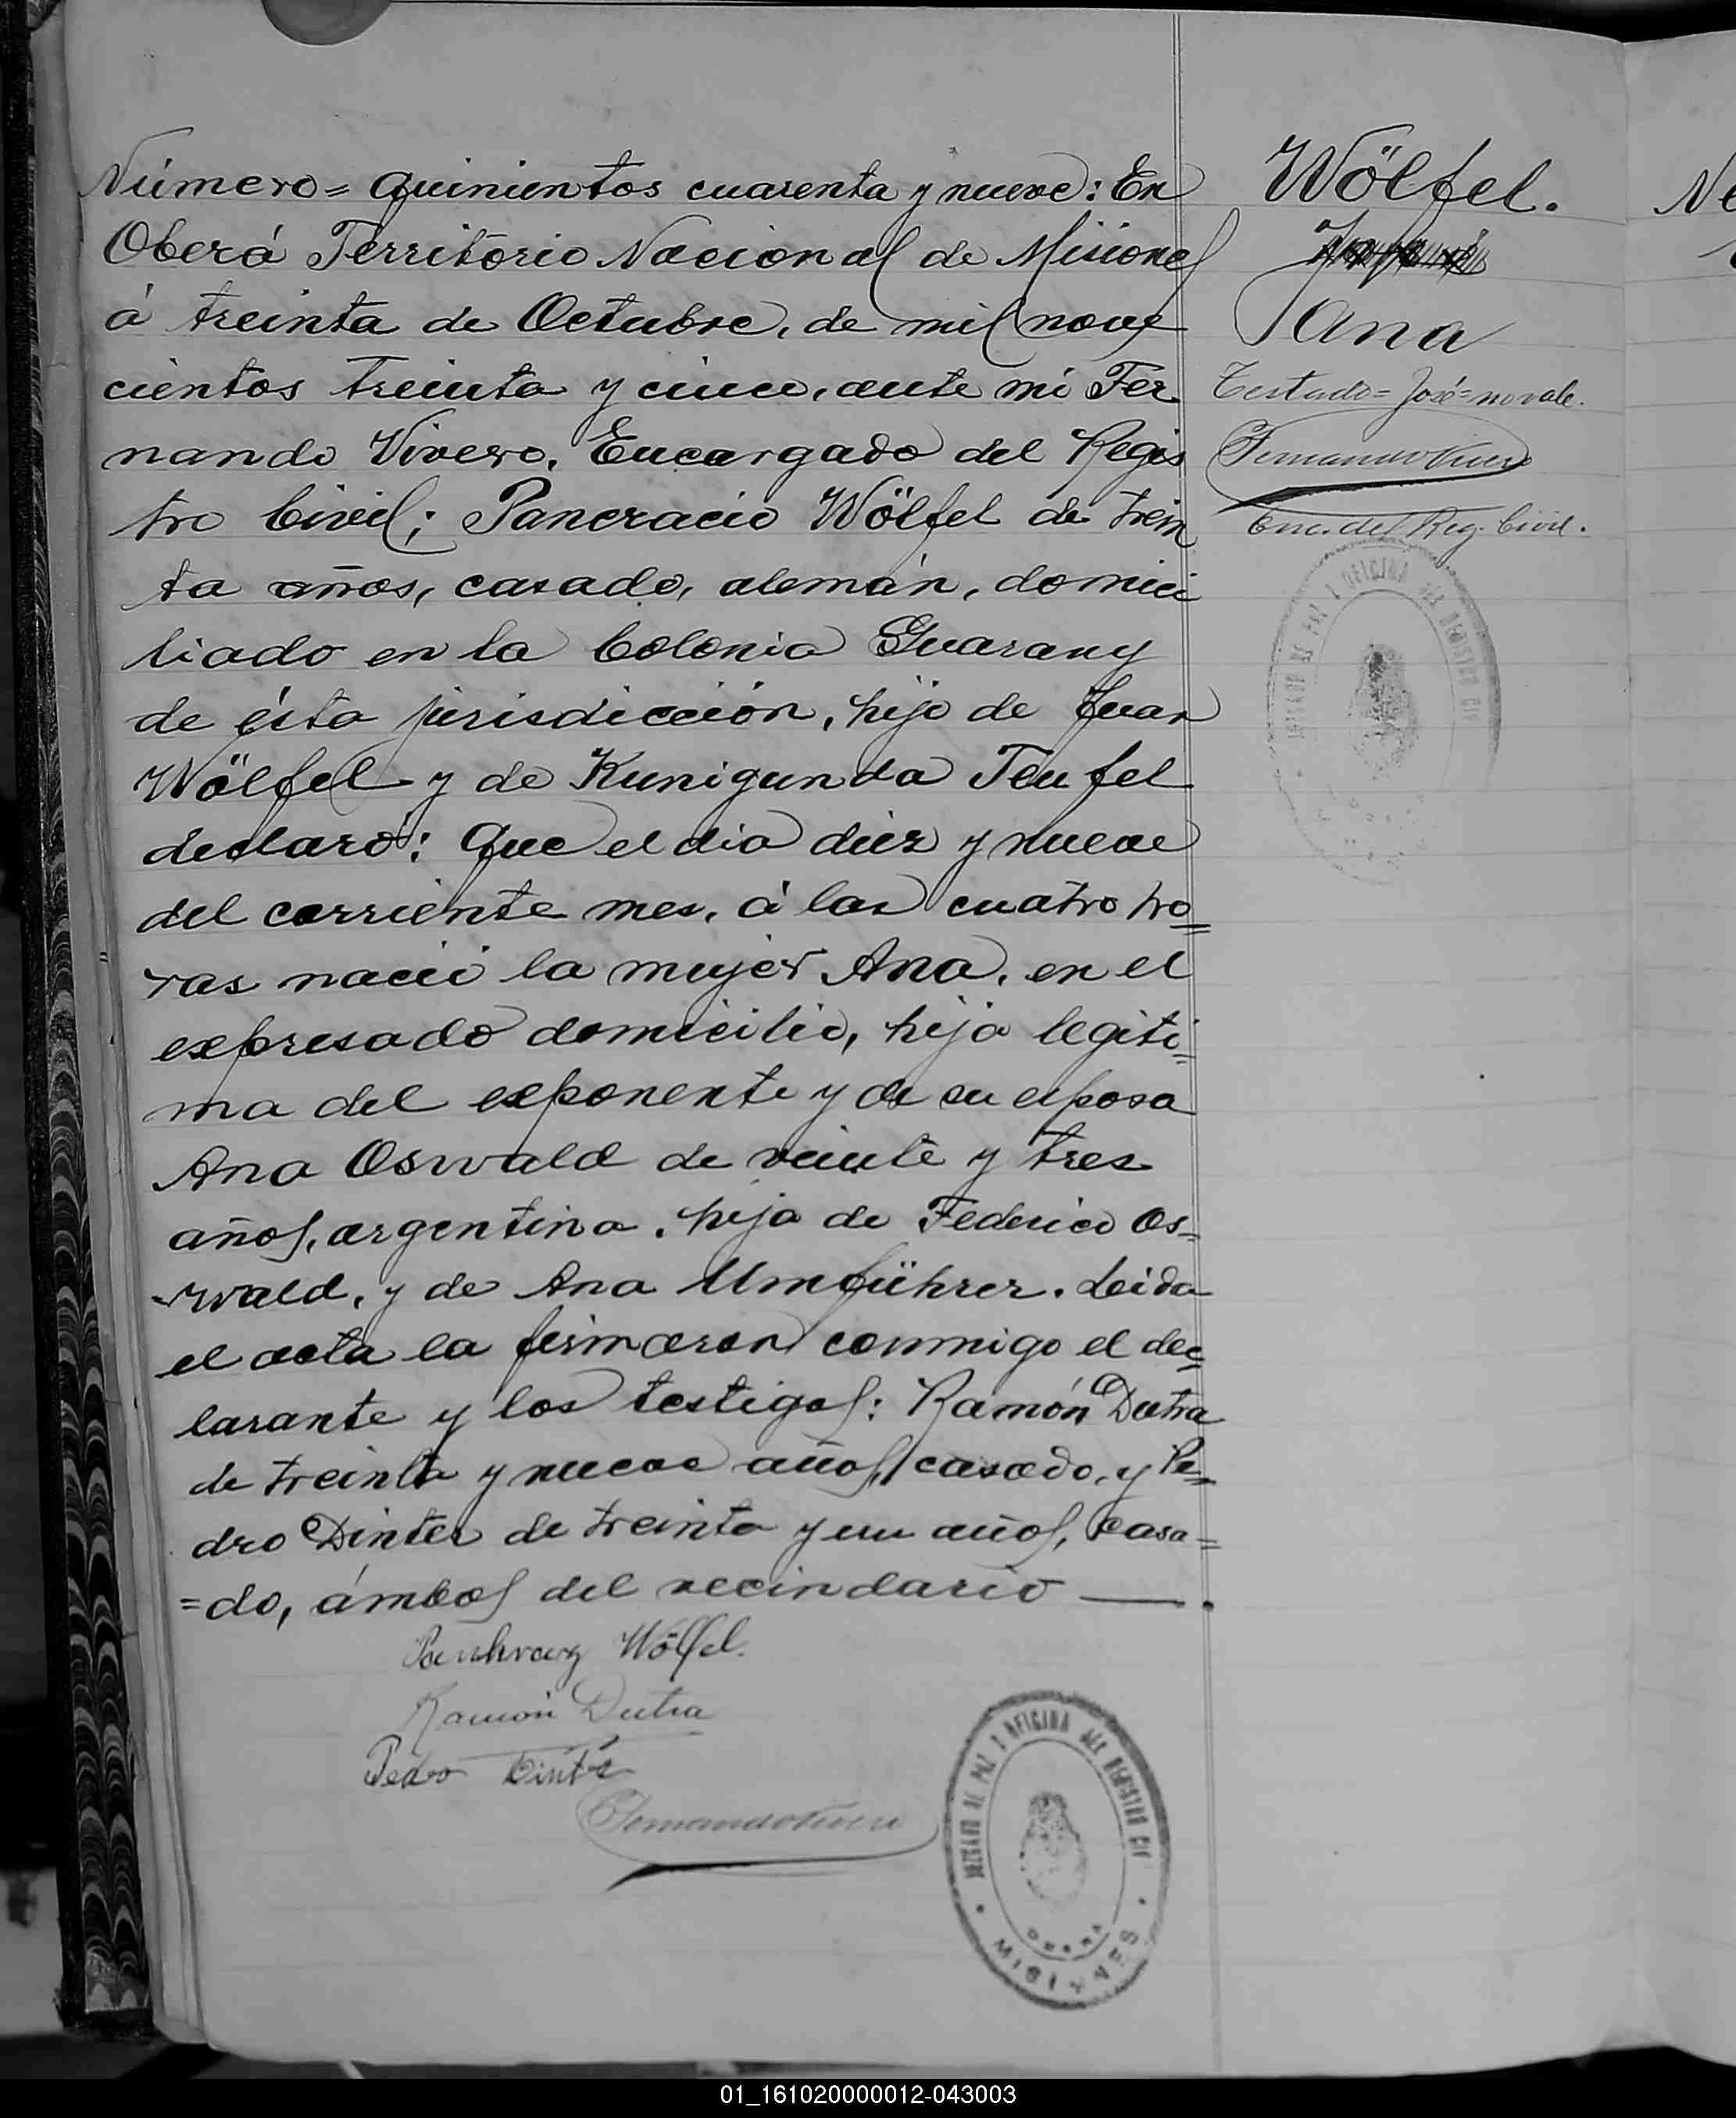 Número = quinientos cuarenta y nueve: En
Oberá Territorio Nacional de Misiones
á treinta de Octubre, de mil nove
cientos treinta y cinco, ante mi Fer
nando Vivero, Encargado del Regis
tro Civil; Pancracio Wölfel de trein
ta años, casado, alemán, domici
liado en la Colonia Guarany
de ésta jurisdicción, hijo de Juan
Wölfel y de Kunigunda Teufel
declaró: Que el dia diez y nueve
del corriente mes, á las cuatro ho=
ras nació la mujer Ana, en el
expresado domicilio, hija legiti=
ma del exponente y de su esposa
Ana Oswald de veinte y tres
años, argentina, hija de Federico Os=
wald, y de Ana Umführer. Leida
el acta la firmaron conmigo el dec=
larante y los testigos: Ramón Dutra
de treinta y nueve años, casado, y Pe=
dro Dinter de treinta y un años, casa=
=do, ámbos del vecindario —.
Pankraz Wölfel.
Ramón Dutra
Pedro Dinter
Fernando Vivero
JUZGADO DE PAZ Y OFICINA DEL REGISTRO CIV
OBERA
MISIONES
Wölfel.
Ana
Testado = José = no vale.
Fernando Vivero
Enc. del Reg. Civil.
JUZGADO DE PAZ Y OFICINA DEL REGISTRO CIV
Nú
01_161020000012-043003